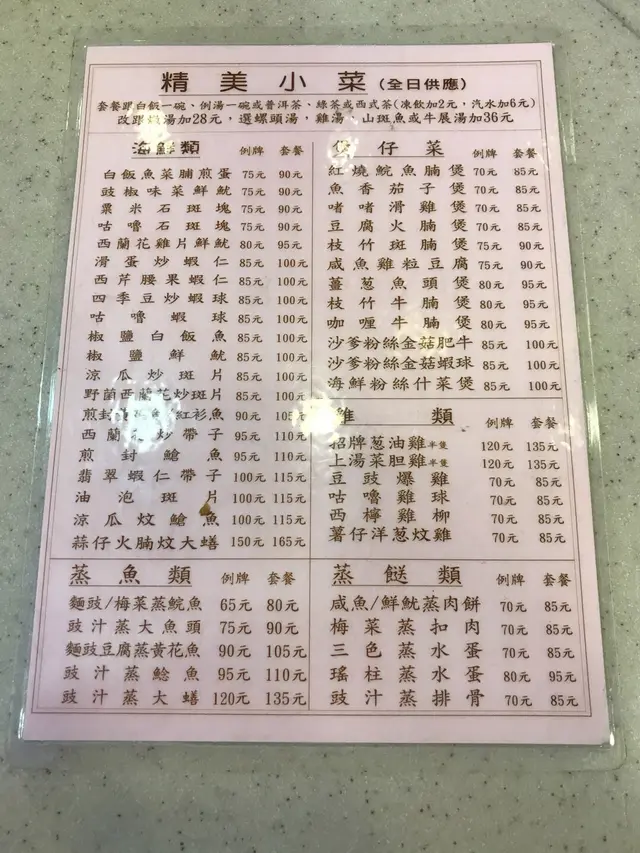 精美小菜(全日供應)
套餐跟白飯一碗、例湯一碗或普洱茶、綠茶或西式茶(凍飲加2元，汽水加6元)
改跟燉湯加28元，選螺頭湯，雞湯、山斑魚或牛展湯加36元
海鮮類 例牌 套餐
白飯魚菜脯煎蛋 75元 90元
豉椒味菜鮮魷 75元 90元
粟米石斑塊 75元 90元
咕嚕石斑塊 75元 90元
西蘭花雞片鮮魷 80元 95元
滑蛋炒蝦仁 85元 100元
西芹腰果蝦仁 85元 100元
四季豆炒蝦球 85元 100元
咕嚕蝦球 85元 100元
椒鹽白飯魚 85元 100元
椒鹽鮮魷 85元 100元
涼瓜炒斑片 85元 100元
野菌西蘭花炒斑片 85元 100元
煎封 紅衫魚 90元 105元
西蘭花炒帶子 95元 110元
煎封鯧魚 95元 110元
翡翠蝦仁帶子 100元 115元
油泡斑片 100元 115元
涼瓜炆鯧魚 100元 115元
蒜仔火腩炆大鱔 150元 165元
煲仔菜 例牌 套餐
紅燒鯇魚腩煲 70元 85元
魚香茄子煲 70元 85元
啫啫滑雞煲 70元 85元
豆腐火腩煲 70元 85元
枝竹斑腩煲 75元 90元
咸魚雞粒豆腐 75元 90元
薑蔥魚頭煲 80元 95元
枝竹牛腩煲 80元 95元
咖喱牛腩煲 80元 95元
沙爹粉絲金菇肥牛 85元 100元
沙爹粉絲金菇蝦球 85元 100元
海鮮粉絲什菜煲 85元 100元
雞類 例牌 套餐
招牌蔥油雞半隻 120元 135元
上湯菜胆雞半隻 120元 135元
豆豉爆雞 70元 85元
咕嚕雞球 70元 85元
西檸雞柳 70元 85元
薯仔洋蔥炆雞 70元 85元
蒸魚類 例牌 套餐
麵豉/梅菜蒸鯇魚 65元 80元
豉汁蒸大魚頭 75元 90元
麵豉豆腐蒸黃花魚 90元 105元
豉汁蒸鯰魚 95元 110元
豉汁蒸大鱔 120元 135元
蒸餸類 例牌 套餐
咸魚/鮮魷蒸肉餅 70元 85元
梅菜蒸扣肉 70元 85元
三色蒸水蛋 70元 85元
瑤柱蒸水蛋 80元 95元
豉汁蒸排骨 70元 85元